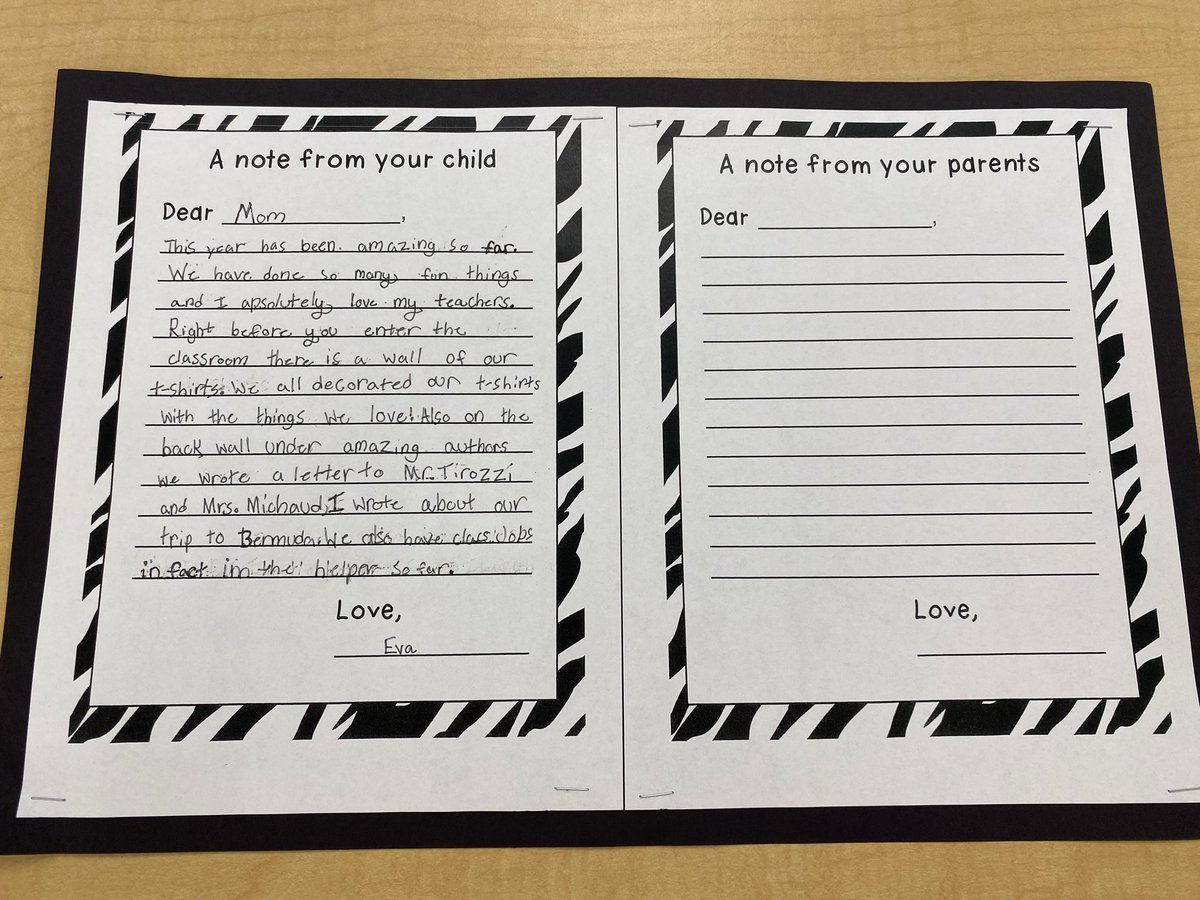 A note from your child
Dear Mom,
This year has been amazing so far.
We have done so many fun things
and I apsolutely love my teachers.
Right before you enter the
classroom there is a wall of our
t-shirts. We all decorated our t-shirts
with the things we love! Also on the
back wall under amazing authors
we wrote a letter to Mr. Tirozzi
and Mrs. Michaud, I wrote about our
trip to Bermuda. We also have class Jobs
in fact im the helper so far.
Love,
Eva
A note from your parents
Dear ,
Love,